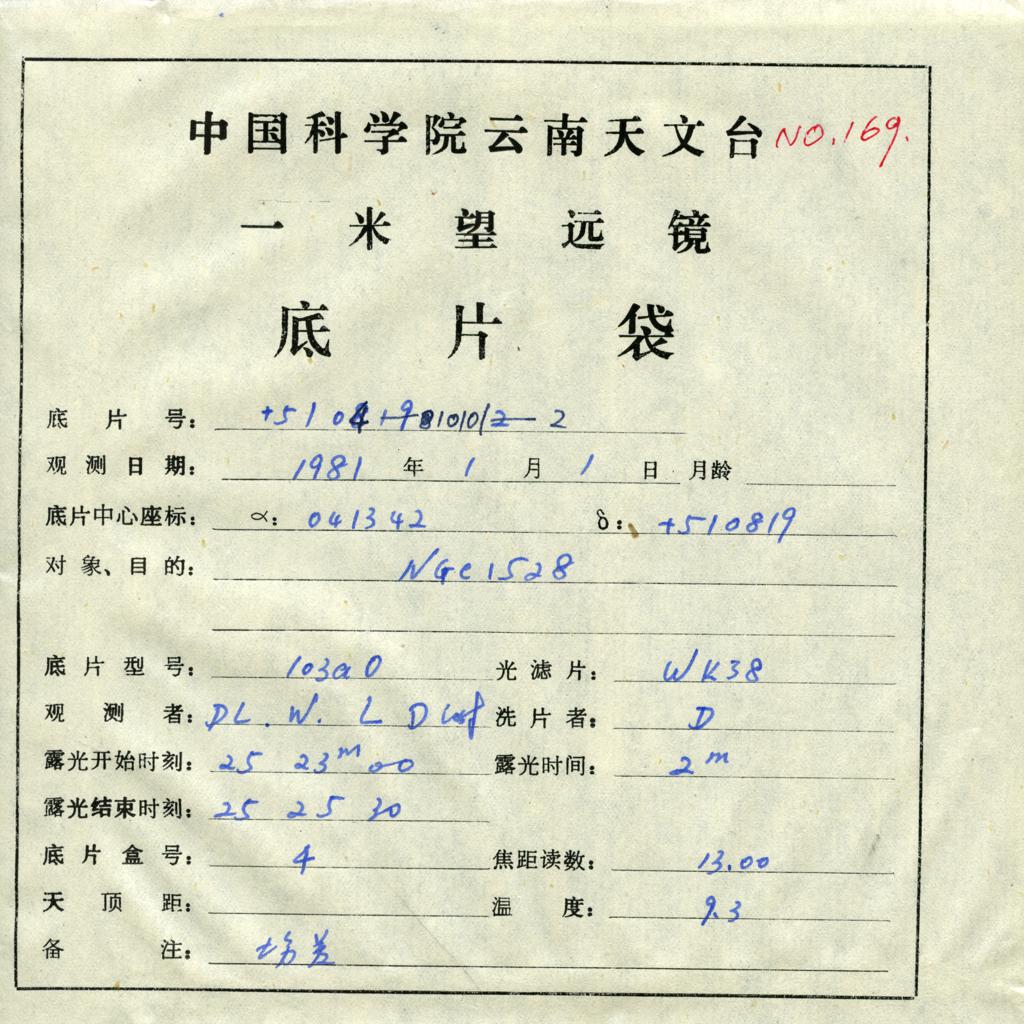 中国科学院云南天文台 NO.169.
一米望远镜
底片袋
底片号:
观测日期: 1981 年 1 月 1 日 月龄
底片中心座标: α: 041342 δ: +510819
对象、目的: NGC1528
底片型号: 103aO 光滤片: WK38
观测者: DL. W. L D 洗片者: D
露光开始时刻: 25 23m 00 露光时间: 2m
露光结束时刻: 25 25 30
底片盒号: 4 焦距读数: 13.00
天顶距: 温度: 9.3
备注: 场差